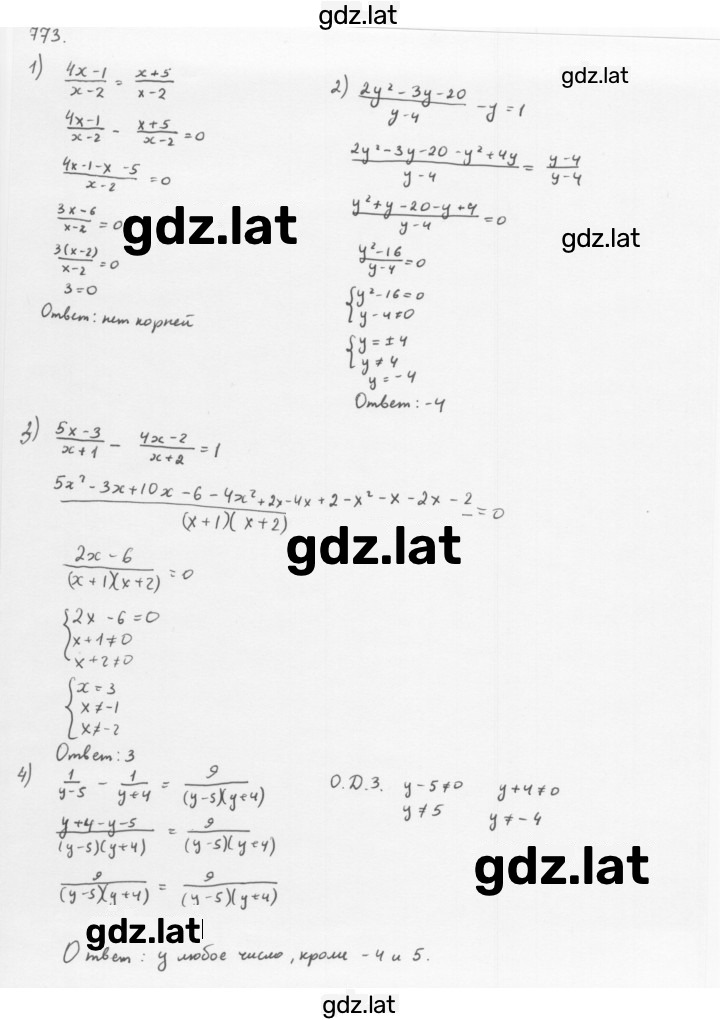 gdz.lat
773.
1) (4x-1)/(x-2) = (x+5)/(x-2)
(4x-1)/(x-2) - (x+5)/(x-2) = 0
(4x-1-x-5)/(x-2) = 0
(3x-6)/(x-2) = 0
gdz.lat
(3(x-2))/(x-2) = 0
3=0
Ответ: нет корней
gdz.lat
2) (2y²-3y-20)/(y-4) - y = 1
(2y²-3y-20-y²+4y)/(y-4) = (y-4)/(y-4)
(y²+y-20-y+4)/(y-4) = 0
gdz.lat
(y²-16)/(y-4) = 0
{y²-16=0
y-4≠0
{y=±4
y≠4
y=-4
Ответ: -4
3) (5x-3)/(x+1) - (4x-2)/(x+2) = 1
(5x²-3x+10x-6-4x²+2x-4x+2-x²-x-2x-2)/((x+1)(x+2)) = 0
gdz.lat
(2x-6)/((x+1)(x+2)) = 0
{2x-6=0
x+1≠0
x+2≠0
{x=3
x≠-1
x≠-2
Ответ: 3
4) 1/(y-5) - 1/(y+4) = 9/((y-5)(y+4))
О.Д.З. y-5≠0 y+4≠0
y≠5 y≠-4
(y+4-y-5)/((y-5)(y+4)) = 9/((y-5)(y+4))
gdz.lat
9/((y-5)(y+4)) = 9/((y-5)(y+4))
gdz.lat
Ответ: y любое число, кроме -4 и 5.
gdz.lat